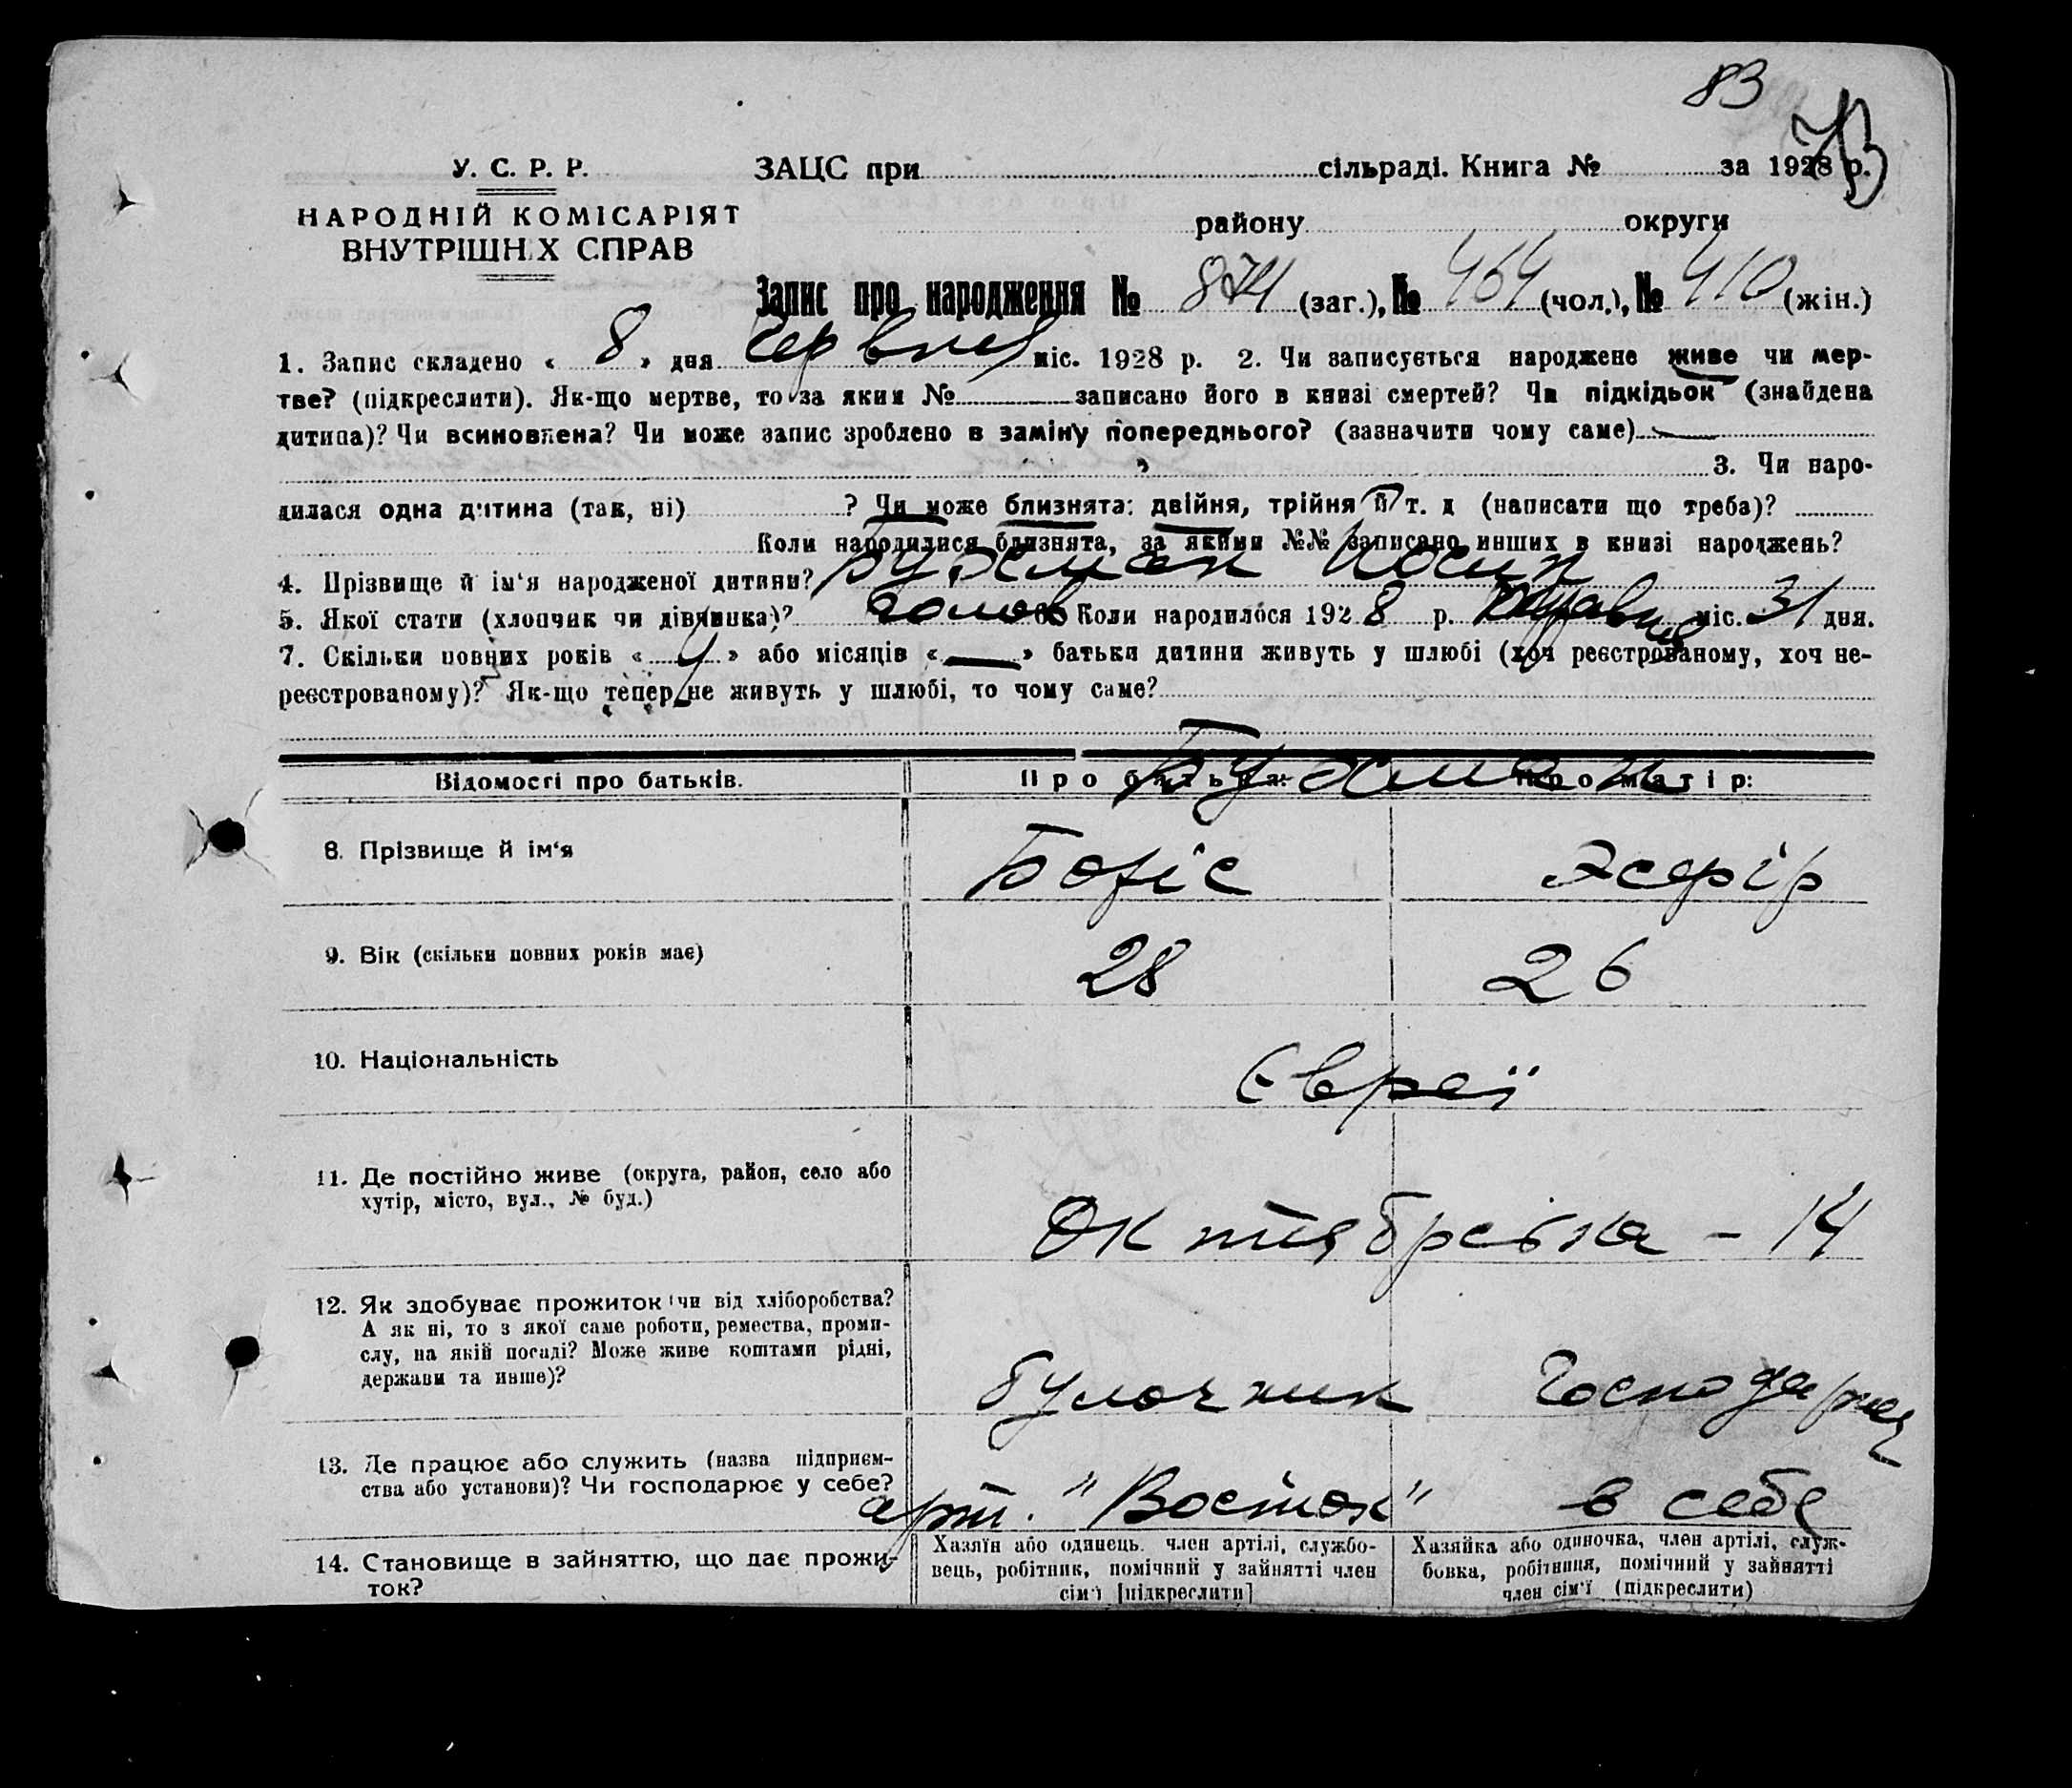 83
73
У. С. Р. Р. ЗАЦС при сільраді. Книга № за 1928 р.
НАРОДНІЙ КОМІСАРІЯТ району округи
ВНУТРІШНІХ СПРАВ
Запис про народження № 874 (заг.), № 464 (чол.), № 410 (жін.)
1. Запис складено « 8 » дня Червня міс. 1928 р. 2. Чи записується народжене живе чи мер-
тве? (підкреслити). Як-що мертве, то за яким № записано його в книзі смертей? Чи підкідьок (знайдена
дитина)? Чи всиновлена? Чи може запис зроблено в заміну попереднього? (зазначити чому саме)
3. Чи наро-
дилася одна дитина (так, ні) ? Чи може близнята: двійня, трійня й т. д (написати що треба)?
Коли народилися близнята, за якими №№ записано инших в книзі народжень?
4. Прізвище й ім'я народженої дитини?
5. Якої стати (хлопчик чи дівчинка)? 6. Коли народилося 1928 р. Травня міс. 31 дня.
7. Скільки повних років « 4 » або місяців « — » батьки дитини живуть у шлюбі (хоч реєстрованому, хоч не-
реєстрованому)? Як-що тепер не живуть у шлюбі, то чому саме?
Відомості про батьків. Про батька: Про матір:
8. Прізвище й ім'я Борис
9. Вік (скільки повних років має) 28 26
10. Національність Євреї
11. Де постійно живе (округа, район, село або
хутір, місто, вул., № буд.) Октябрська - 14
12. Як здобуває прожиток чи від хліборобства?
А як ні, то з якої саме роботи, ремества, проми-
слу, на якій посаді? Може живе коштами рідні,
держави та инше)? булочник Господарня
13. Де працює або служить (назва підприєм-
ства або установи)? Чи господарює у себе? арт. "Восток" в себе
14. Становище в зайняттю, що дає прожи-
ток?
Хазяїн або одинець. член артілі, службо-
вець, робітник, помічний у зайнятті член
сім'ї [підкреслити]
Хазяйка або одиночка, член артілі, служ-
бовка, робітниця, помічний у зайнятті
член сім'ї (підкреслити)